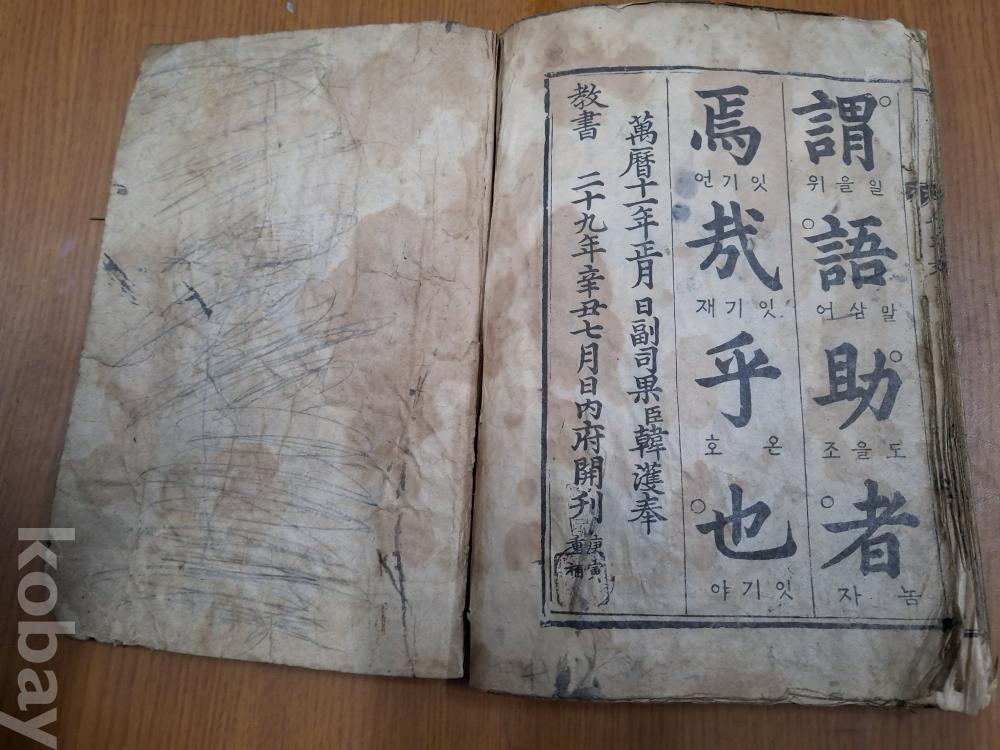 謂語助者
일을위 말삼어 도을조 놈자
焉哉乎也
잇기언 잇기재 온호 잇기야
萬曆十一年正月 日副司果臣韓濩奉
教書 二十九年辛丑七月日內府開刊
庚寅
重補
kobay